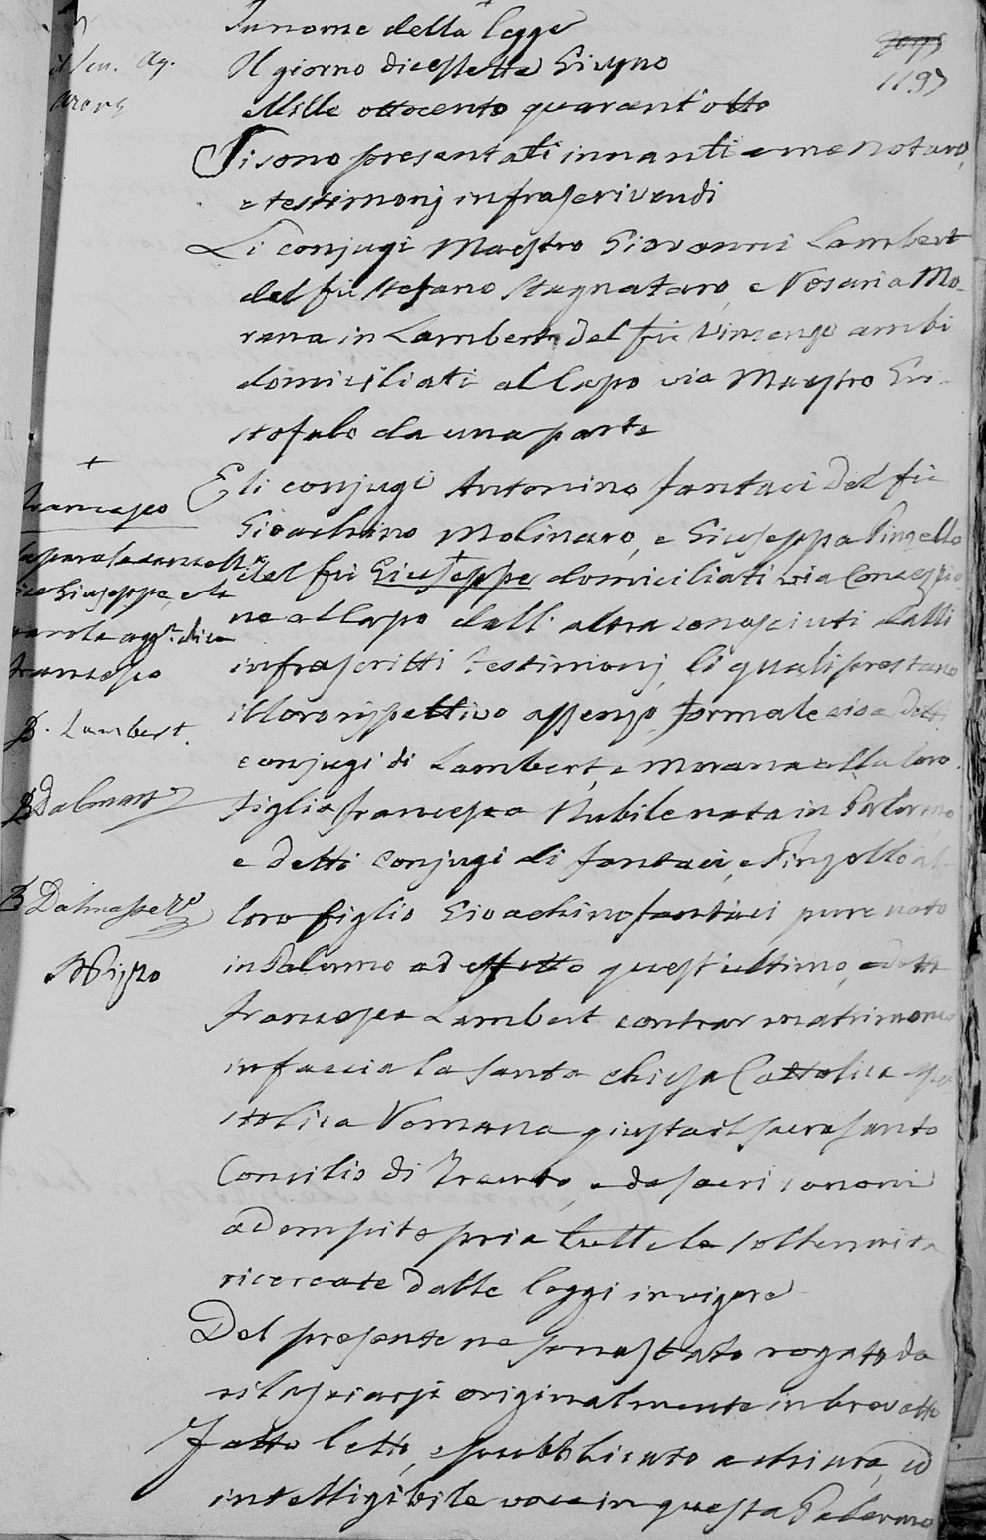 In nome della legge
Il giorno dicessette Giugno
Mille ottocento quarant'otto
1197
Si sono presentati innanti a me Notaro,
e testimonj infrascrivendi
Li conjugi Maestro Giovanni Lambert
del fu Stefano Stagnataro, e Rosaria Mo-
rana in Lambert del fu Vincenzo ambi
domiciliati al Capo via Maestro Cri-
stofalo da una parte
E li conjugi Antonino Fantaci del fu
Gioachino Molinaro, e Giuseppa Pingello
del fu Giuseppe domiciliati via Concezio-
ne al Capo dall'altra conosciuti dalli
infrascritti testimonj, li quali prestano
il loro rispettivo assenzo formale cioè detti
conjugi di Lambert, e Morana alla loro
figlia Francesca Nubile nata in Palermo
e detti conjugi di Fantaci, e Pingello al
loro figlio Gioachino Fantaci pure nato
in Palermo ad effetto quest'ultimo, e detta
Francesca Lambert contrar matrimonio
in faccia la Santa Chiesa Cattolica Apo-
stolica Romana giusta il sacrosanto
Concilio di Trento, e da sacri canoni
adempite pria tutte le sollennità
ricercate dalle leggi in vigore
Del presente ne sono stato rogato da
rilasciarsi originalmente in brevetto
Fatto letto, e pubblicato a chiara, ed
intelligibile voce in questa Palermo
+
Francesco
la parola cancell.
Giuseppe, e la
parola agg.ta dice
Francesco
Lambert
Dalmaso
Dalmaso